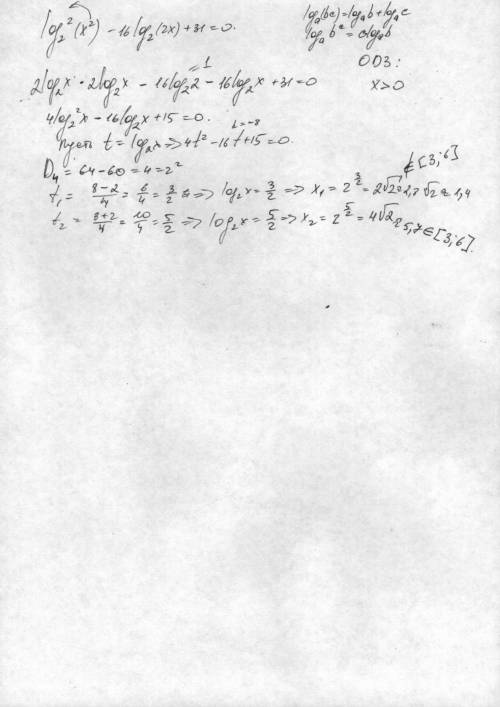 log₂²(x²) - 16log₂(2x) + 31 = 0.
logₐ(bc) = logₐb + logₐc
logₐbᶜ = clogₐb
ОДЗ:
x > 0
2log₂x · 2log₂x - 16log₂2 - 16log₂x + 31 = 0
= 1
4log₂²x - 16log₂x + 15 = 0.
Пусть t = log₂x => 4t² - 16t + 15 = 0.
k = -8
D₄ = 64 - 60 = 4 = 2²
t₁ = (8-2)/4 = 6/4 = 3/2 => log₂x = 3/2 => x₁ = 2^(3/2) = 2√2 ≈ 2,8 ∉ [3; 6]
√2 ≈ 1,4
t₂ = (8+2)/4 = 10/4 = 5/2 => log₂x = 5/2 => x₂ = 2^(5/2) = 4√2 ≈ 5,7 ∈ [3; 6].